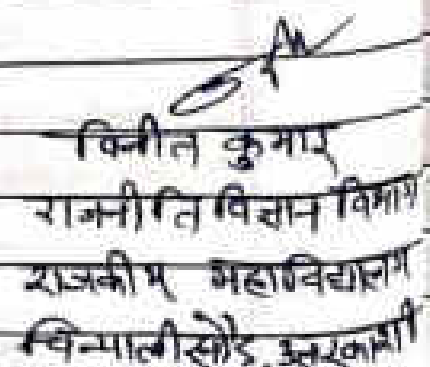 विनीत कुमार
राजनीति विज्ञान विभाग
राजकीय महाविद्यालय
चिन्यालीसौड़, उत्तरकाशी